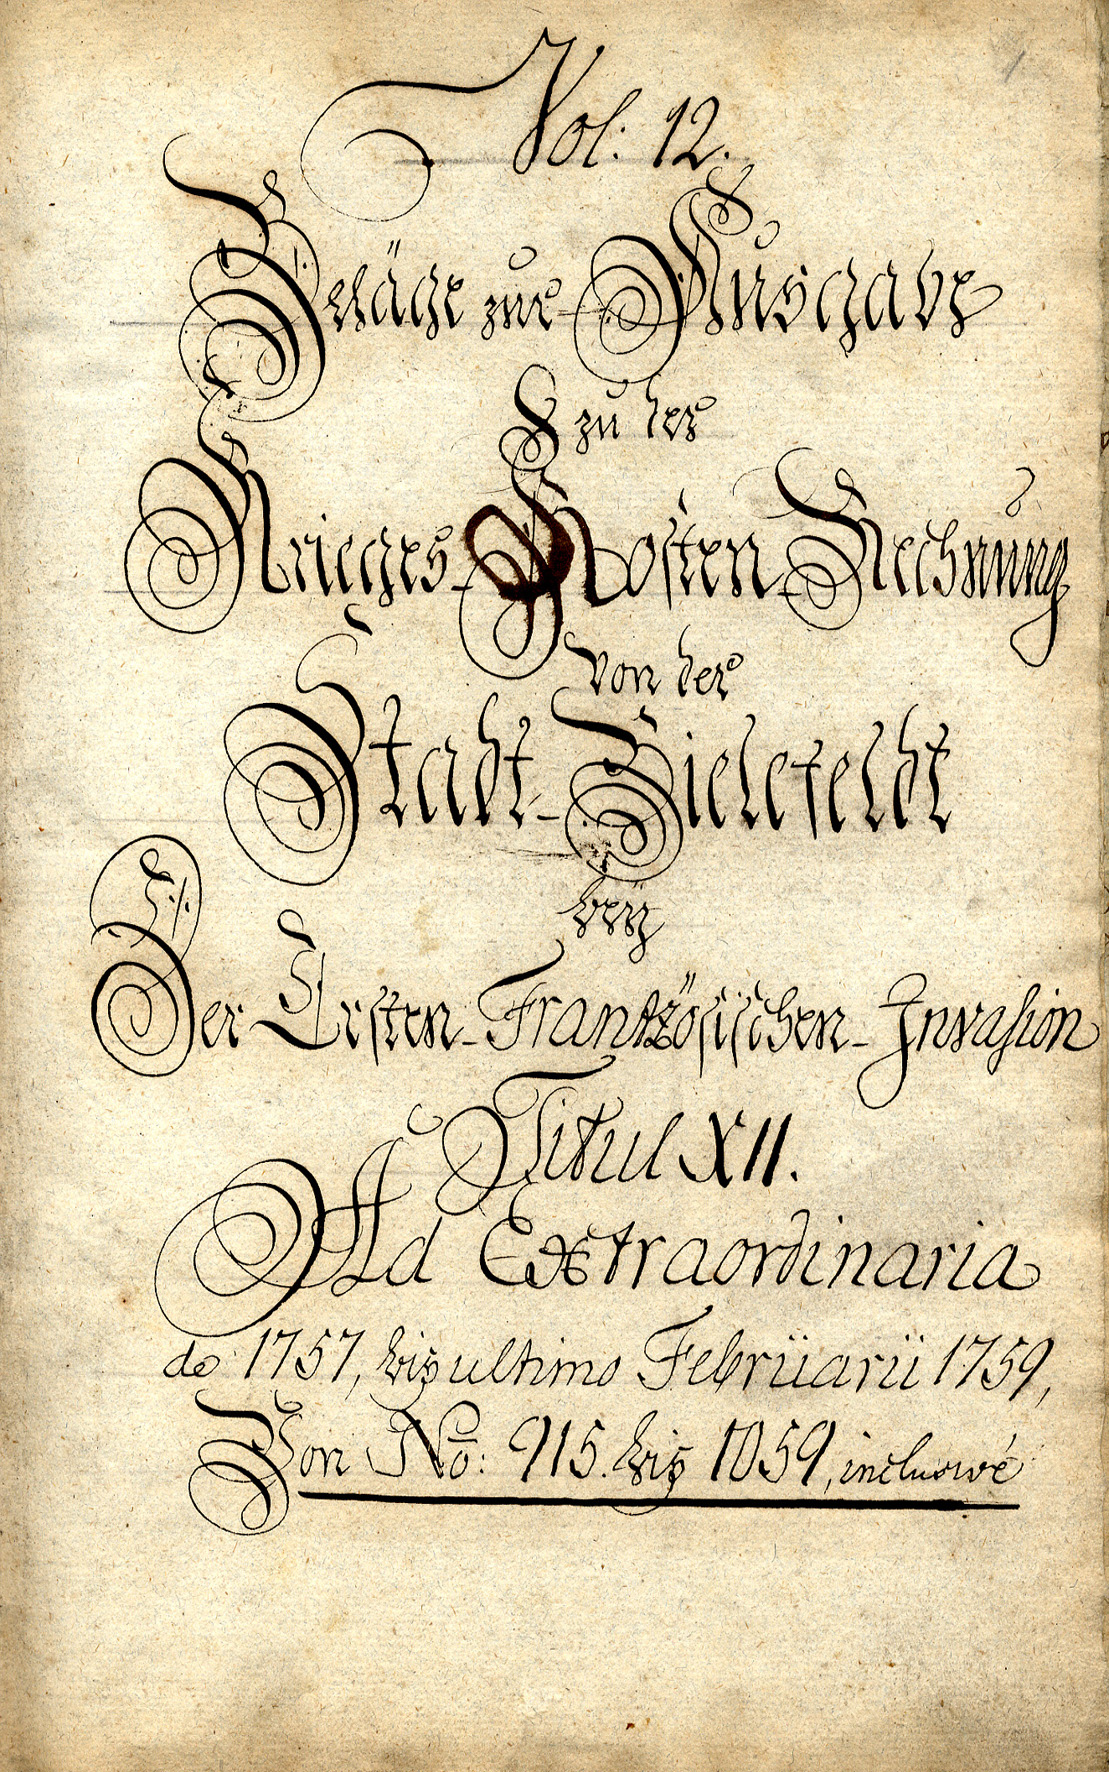 1
Vol: 12.
Beläge zur Ausgabe
zu der
Krieges-Kosten-Rechnung
von der
Stadt-Bielefeldt
beÿ
Der Ersten-Frantzösischen-Invasion
Titul XII.
Ad Extraordinaria
de 1757, bis ultimo Februarii 1759,
Von No: 915. bis 1059, inclusivé